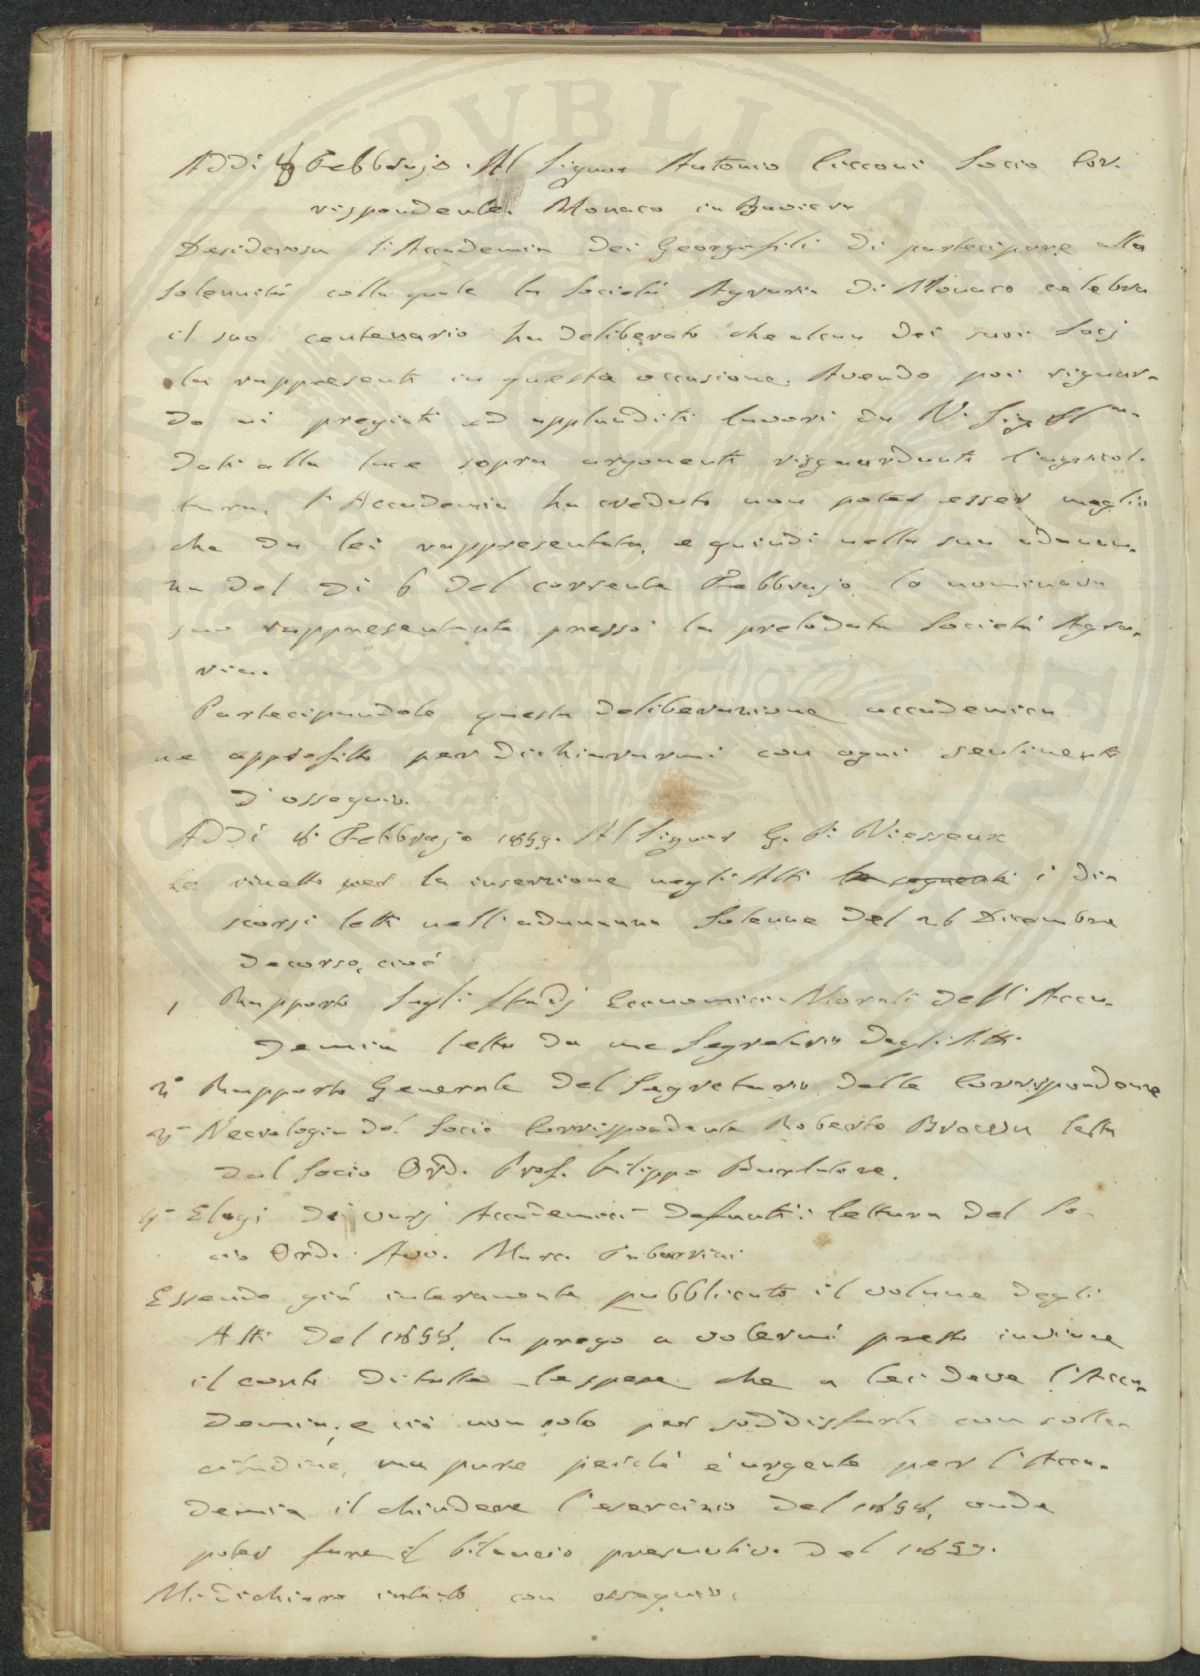 Addì 8 Febbrajo. Al Signor Antonio Cicconi Socio Cor-
rispondente. Monaco in Baviera
Desiderosa l'Accademia dei Georgofili di partecipare alla
solennità colla quale la Società Agraria di Monaco celebra
il suo centenario ha deliberato che alcun dei suoi Socj
la rappresenti in questa occasione. Avendo poi riguar-
do ai pregiati ed applauditi lavori da V. Sig.
dati alla luce sopra argomenti risguardanti l'agricol-
tura, l'Accademia ha creduto non poter esser meglio
che da lei rappresentata, e quindi nella sua adunan-
za del dì 6 del corrente Febbrajo lo nominava
suo rappresentante presso la prelodata Società Agra-
ria.
Partecipandole questa deliberazione accademica
ne approfitto per dichiararmi con ogni sentimento
d'ossequio.
Addì 8. Febbrajo 1859. Al Signor G. P. Viesseux
Le rimetto per la inserzione negli Atti le seguenti i di-
scorsi letti nell'adunanza Solenne del 26 Dicembre
decorso, cioè
1 Rapporto sugli Studj Economico-Morali dell'Acca-
demia letto da me Segretario degli Atti.
2° Rapporto Generale del Segretario delle Corrispondenze
3° Necrologia del Socio Corrispondente Roberto Brown letta
dal Socio Ord. Prof. Filippo Parlatore.
4° Elogi di varj Accademici defunti: lettura del So-
cio Ord. Avv. Marc. Tabarrini
Essendo già interamente pubblicato il volume degli
Atti del 1858, la prego a volermi presto inviare
il conto di tutte le spese che a lei deve l'Acca-
demia, e ciò non solo per soddisfarla con solle-
citudine, ma pure perchè è urgente per l'Acca-
demia il chiudere l'esercizio del 1858, onde
poter fare il bilancio preventivo del 1859.
Mi dichiaro intanto con ossequio.
PVBLICA